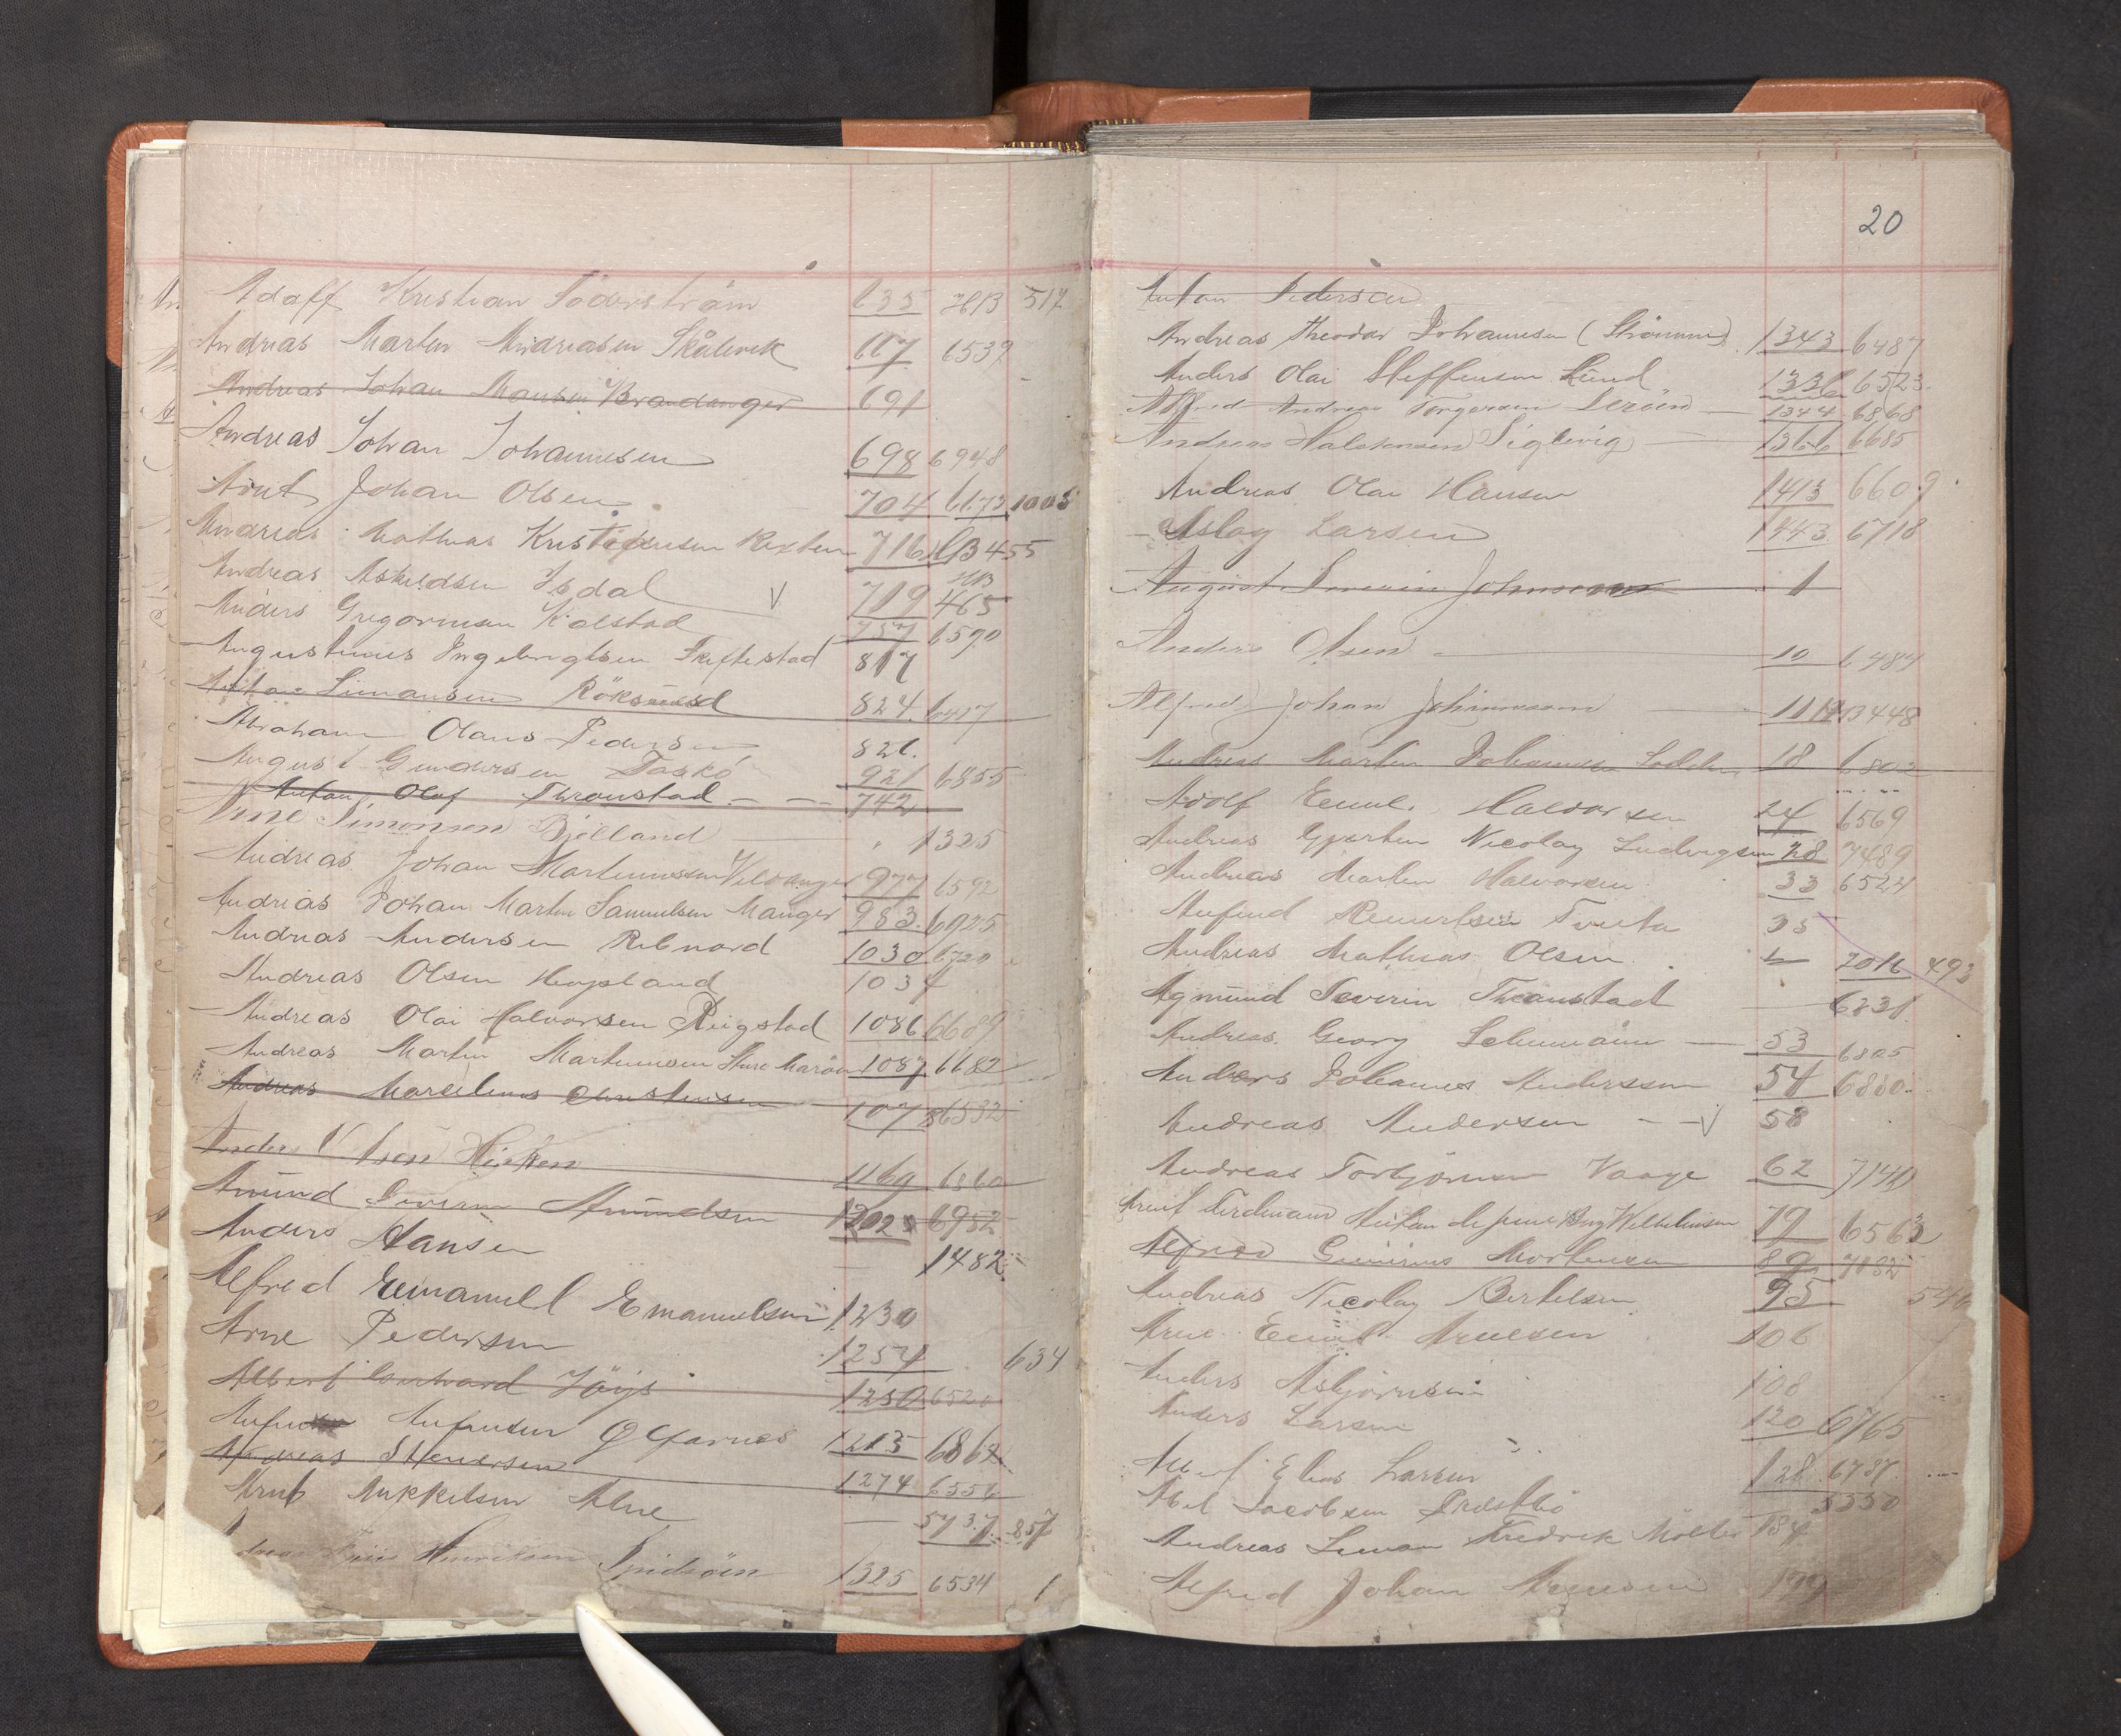 Adolf Kristian Söderström 635 HB 517
Andreas Martin Andreasen Skålevik 667 6539
Andreas Johan Monsen Brandanger 691
Andreas Johan Johannesen 698 6948
Arnt Johan Olsen 704 6173 1005
Andreas Mathias Kristoffersen Rexten 716 HB 455
Andreas Askildsen Isdal V 719 HB 465
Anders Gregoriusen Kolstad 757 6590
Augustinus Ingebrigtsen Skiftestad 817
Simonsen Röksund 824 6417
Abraham Olaus Pedersen 826.
August Gundersen Toskö 921 6855
Anton Olaf Thronstad - - 742
Arne Simonsen Bjelland " 1325
Andreas Johan Martinussen 977 6592
Andreas Johan Martin Samuelsen Manger 983 6925
Andreas Andersen Rebnord 1030 6720
Andreas Olsen Hopland 1034
Andreas Olai Halvorsen Reigstad 1086 6689
Andreas Martin Martinusen 1087 6682
Andreas Marselinus Christensen 1073 6532
Anders 1169 6860
Amund Severin Amundsen 1202 6952
Anders Hansen 1482
Alfred Emanuell Emanuelsen 1230
Arne Pedersen 1254 634
Albert Gerhard 1250 6520
Anfinsen Garnes 1213 686
Andreas Stenersen 1274 6556
Arnt Mikkelsen Alne — 5737 857
Henriksen 1325 6534 1
20
Anton Pedersen
Andreas Theodor Johannesen (Strömme) 1343 6487
Anders Olai Steffensen Lund 1336 6523
Alfred Andreas Torgersen Leröen — 1344 6868
Andreas Haldorsen Siglevig — 1366 6685
Andreas Olai Hansen 1413 6609
Aslag Larsen 1443 6718
August Severin Johnsen 1
Anders Olsen 10 6484
Alfred Johan Johannesen 11 13448
Andreas Martin Johannesen Lodden 18 6802
Adolf Emil Halvorsen 24 6569
Andreas Gjerten Nicolay Ludvigsen 28 7489
Andreas Martin Halvorsen 33 6524
Anfind Reinertsen Tveita 35
Andreas Mathias Olsen 7016 493
Agmund Severin Thronstad 6231
Andreas Georg Lehmann — 53 6805
Anders Johannes Anderssen 54 6880
Andreas Andersen - - V 58
Andreas Torbjørnsen Vaage 62 7140
Arent Ferdinand Wilhelmsen 79 6563
Alfred Mortensen 89 7082
Andreas Nicolay Bertelsen 95 540
Arne Emil Arnesen 106
Anders Asbjörnsen 108
Anders Larsen 120 6765
Albert Elias Larsen 128 6787
Abel Jacobsen Prestbö 5350
Andreas Fredrik Möller 184
Alfred Johan Arnesen 199